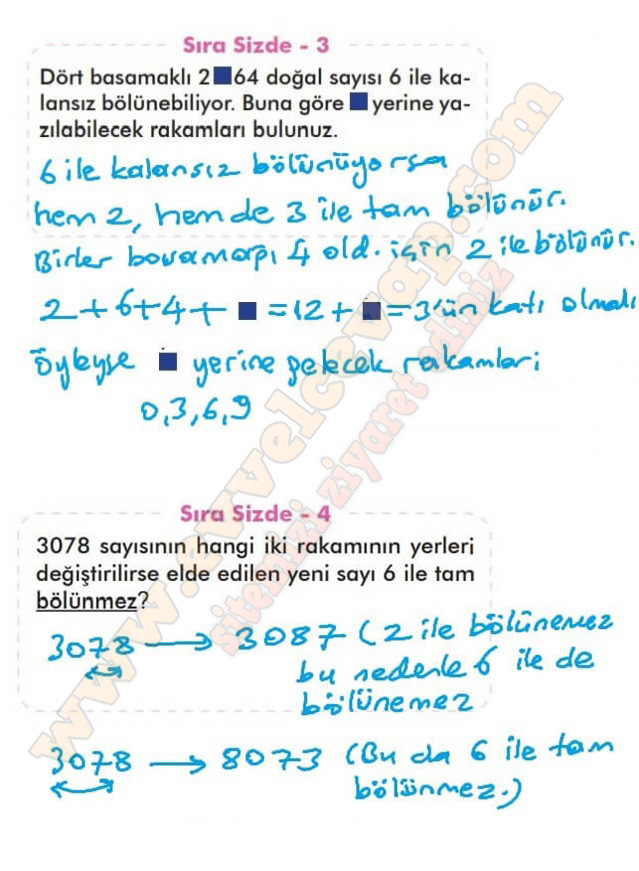 Sıra Sizde - 3
Dört basamaklı 2■64 doğal sayısı 6 ile ka-
lansız bölünebiliyor. Buna göre ■ yerine ya-
zılabilecek rakamları bulunuz.
6 ile kalansız bölünüyorsa
hem 2, hem de 3 ile tam bölünür.
Birler basamağı 4 old. için 2 ile bölünür.
2+6+4+■=12+■=3'ün katı olmalı
Öyleyse ■ yerine gelecek rakamlar;
0,3,6,9
Sıra Sizde - 4
3078 sayısının hangi iki rakamının yerleri
değiştirilirse elde edilen yeni sayı 6 ile tam
bölünmez?
3078 → 3087 (2 ile bölünemez
bu nedenle 6 ile de
bölünemez
3078 → 8073 (Bu da 6 ile tam
bölünmez.)
www.evvelcevap.com
sitemizi ziyaret ediniz